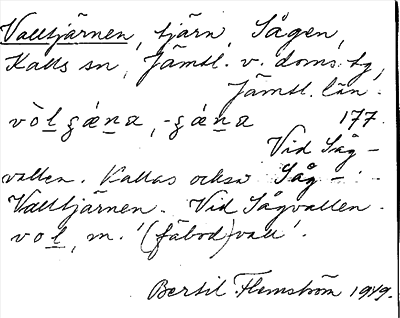 Valltjärnen, tjärn, Sågen,
Kalls sn, Jämtl. v. doms. tg,
Jämtl. län.
177.
Vid Såg-
vallen. Kallas också Såg-
Valltjärnen. Vid Sågvallen.
vol, m. '(fäbod)vall'.
Bertil Flemström 1949.